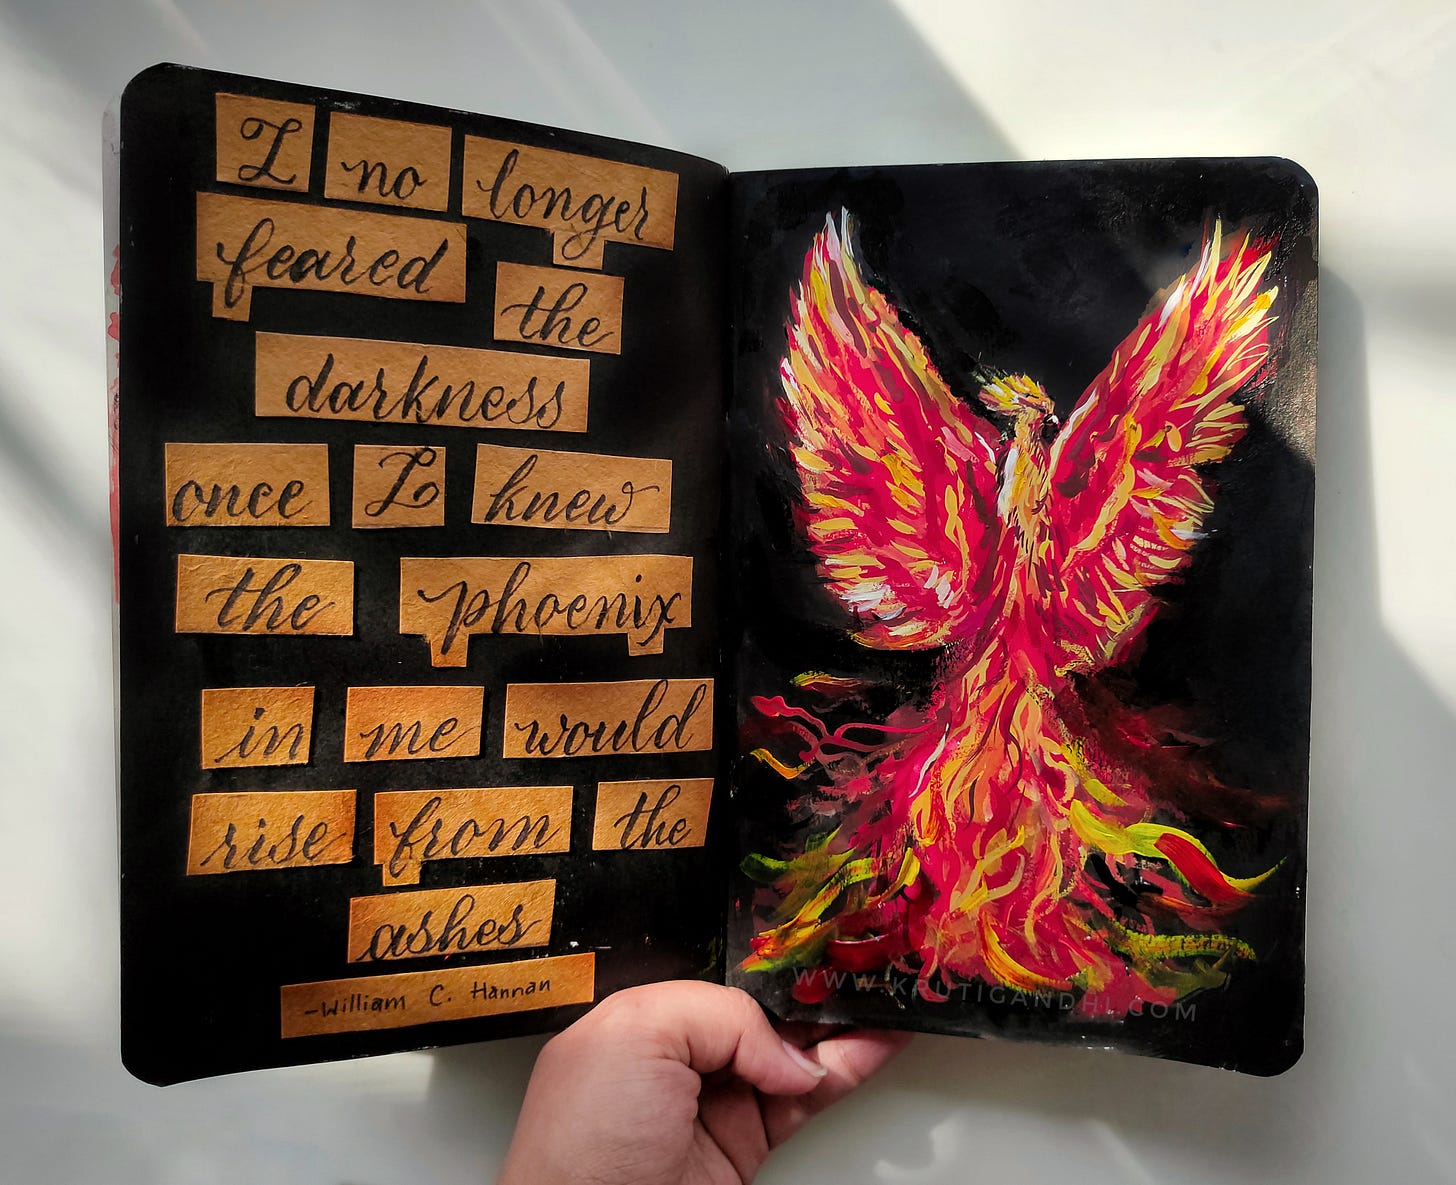 I no longer
feared the
darkness
once I knew
the phoenix
in me would
rise from the
ashes
-William C. Hannan
WWW.KRUTIGANDHI.COM